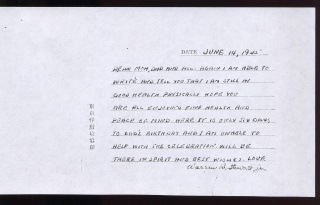 DATE JUNE 14, 194
DEAR MOM, DAD AND ALL. AGAIN I AM ABLE TO
WRITE AND TELL YOU THAT I AM STILL IN
GOOD HEALTH PHYSICALLY HOPE YOU
ARE ALL ENJOYING FINE HEALTH AND
PEACE OF MIND. HERE IT IS ONLY SIX DAYS
TO BUDS BIRTHDAY AND I AM UNABLE TO
HELP WITH THE CELEBRATION. WILL BE
THERE IN SPIRIT AND BEST WISHES. LOVE
Warren Jr.